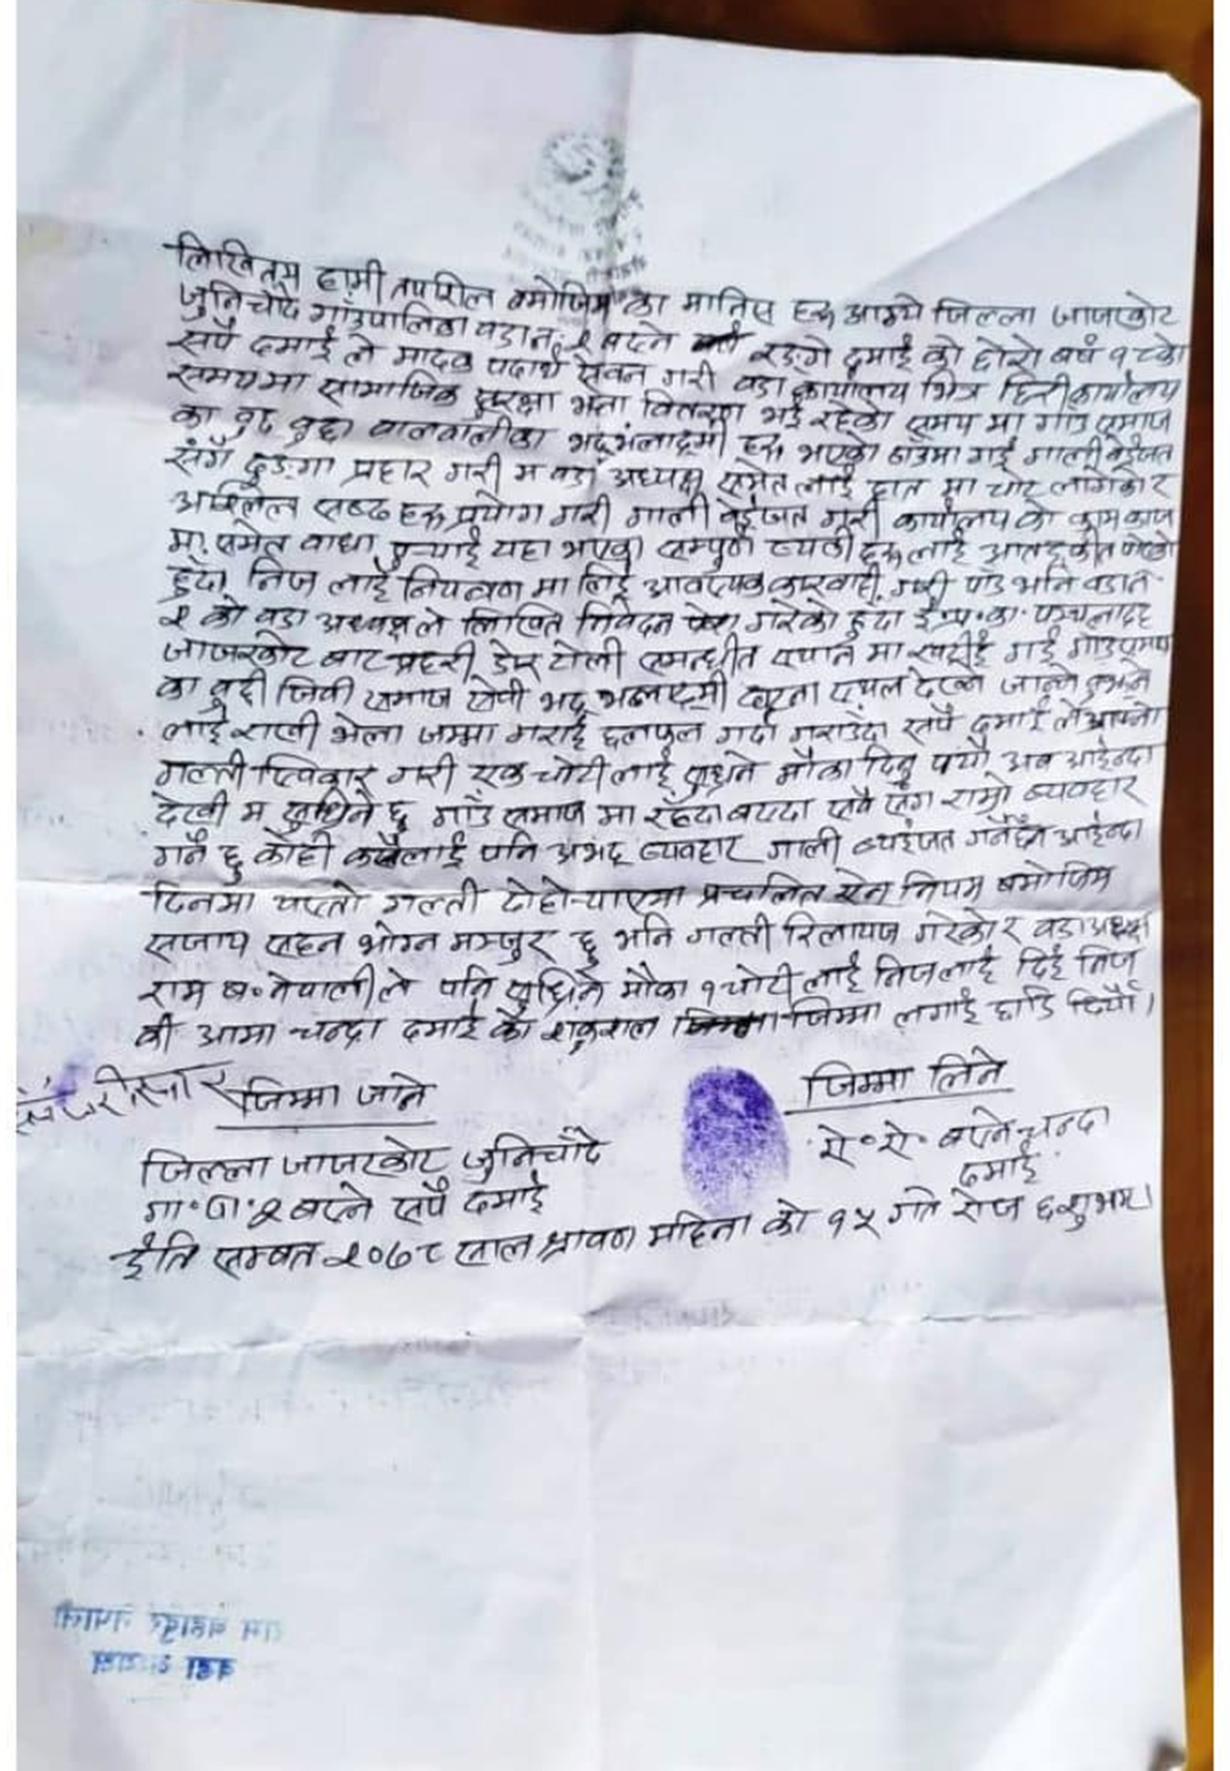 लिखितम हामी तपशिल बमोजिम का मानिस हरु आग्गे जिल्ला जाजरकोट
जुनिचाँदे गाँउपालिका वडा नं. २ बस्ने रङगे दमाई को छोरो बर्ष १८ को
सपै दमाई ले मादक पदार्थ सेवन गरी वडा कार्यालय भित्र छिरी कार्यालय
समयमा सामाजिक सुरक्षा भत्ता वितरण भई रहेको समय मा गाँउ समाज
का बुद बुढा वालवालीका भद्रभलाद्मी हरु भएको ठाँउमा गई गाली बेईजत
संगै ढुङगा प्रहार गरी म वडा अध्यक्ष समेत लाई हात मा चोट लागेको र
अश्लिल सब्द हरु प्रयोग गरी गाली बेईजत गरी कार्यालय को काम काज
मा समेत वाधा पुर्‍याई यहा भएका सम्पुर्ण ब्यक्ती हरु लाई आतङकीत
हुदा निज लाई नियन्त्रण मा लिई आवश्यक कारवाही गरी पाँउ भनि वडा नं
२ को वडा अध्यक्षले लिखित निवेदन गरेको हुदा ई.प्र.का.
जाजरकोट बाट प्रहरी टोली सम्वन्धीत स्थान मा खटीई गई गाँउ समाज
का वुद्दी जिवी समाज सेवी भद्र भलाद्मी घटना स्थल देख्ने जान्ने बुझ्ने
लाई राखी भेला जम्मा गराई छलफुल गर्दा गराउँदा सपै दमाई ले आफ्नो
गल्ती स्विकार गरी एक चोटी लाई सुध्रने मौका दिनु पर्यो अब आईन्दा
देखी म सुध्रिने छु गाँउ समाज मा रहँदा बस्दा सवै संग राम्रो ब्यवहार
गर्ने छु कोही कसैलाई पनि अभद्र ब्यवहार गाली ब्यईजत गर्नेछैन आईन्दा
दिनमा यस्तो गल्ती दोहोर्‍याएमा प्रचलित ऐन नियम बमोजिम
सजाय सहन भोग्न मन्जुर छु भनि गल्ती रिलायज गरेको र वडा अध्यक्ष
राम ब॰ नेपालीले पनि सुध्रिने मौका १ चोटी लाई निजलाई दिई निज
की आमा चन्द्रा दमाई को शकुशल जिम्मा लगाई छाडि दियौं।
जिम्मा जाने
जिम्मा लिने
जिल्ला जाजरकोट जुनिचाँदे
गा॰पा॰ २ बस्ने सपै दमाई
ऐ॰ ऐ॰ बस्ने चन्द्रा
दमाई
ईति सम्बत २०७८ साल श्रावण महिना को १५ गते रोज ६ शुभम।